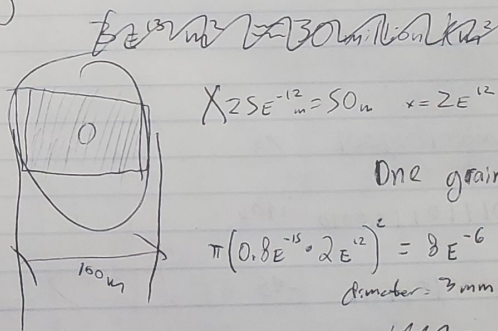 3E¹³ m² = 30 million km²
X 25E⁻¹² m = 50m x = 2E¹²
One grain
π(0.8E⁻¹⁵ · 2E¹²)² = 8E⁻⁶
diameter = 3mm
O
100m